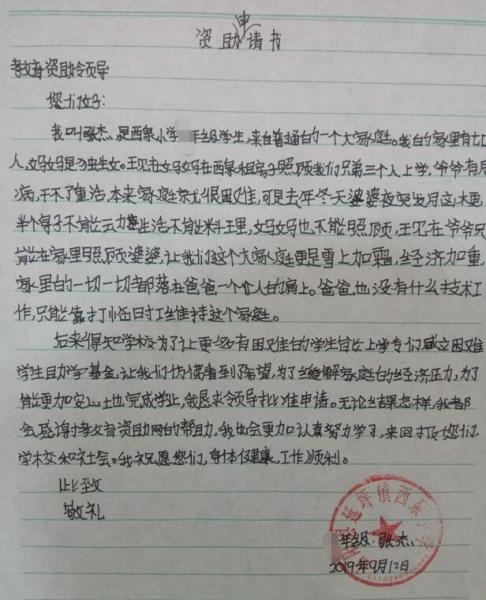 资助申请书
教育资助领导
您们好:
我叫张杰,是西泉小学 年级学生,来自普通的一个大家庭。我的家里有七
人,妈妈是独生女。现在妈妈在西泉租房子照顾我们兄弟三个人上学,爷爷有
病,干不了重活,本来家庭就很困难,可是去年冬天婆婆夜突发
半个身子不能动,生活不能料理,妈妈也不能照顾,现在爷爷只
能在家里照顾婆婆,让我们这个大家庭更是雪上加霜,经济加重,
家里的一切一切都落在爸爸一个人的肩上。爸爸也没有什么技术工
作,只能靠打临时工维持这个家庭。
后来得知学校为了让更多有困难的学生 上学专们成立困难
学生助学基金,让我们仿佛看到了希望,为了缓解家庭的经济压力,为了
能更加安心地完成学业,我恳求领导批准申请。无论结果怎样,我都
会感谢教育资助网的帮助,我也会更加认真努力学习,来回报您们,
学校和社会。我祝愿您们,身体健康,工作顺利。
此致
敬礼
年级:张杰
2019年9月12日
县延坪镇西东